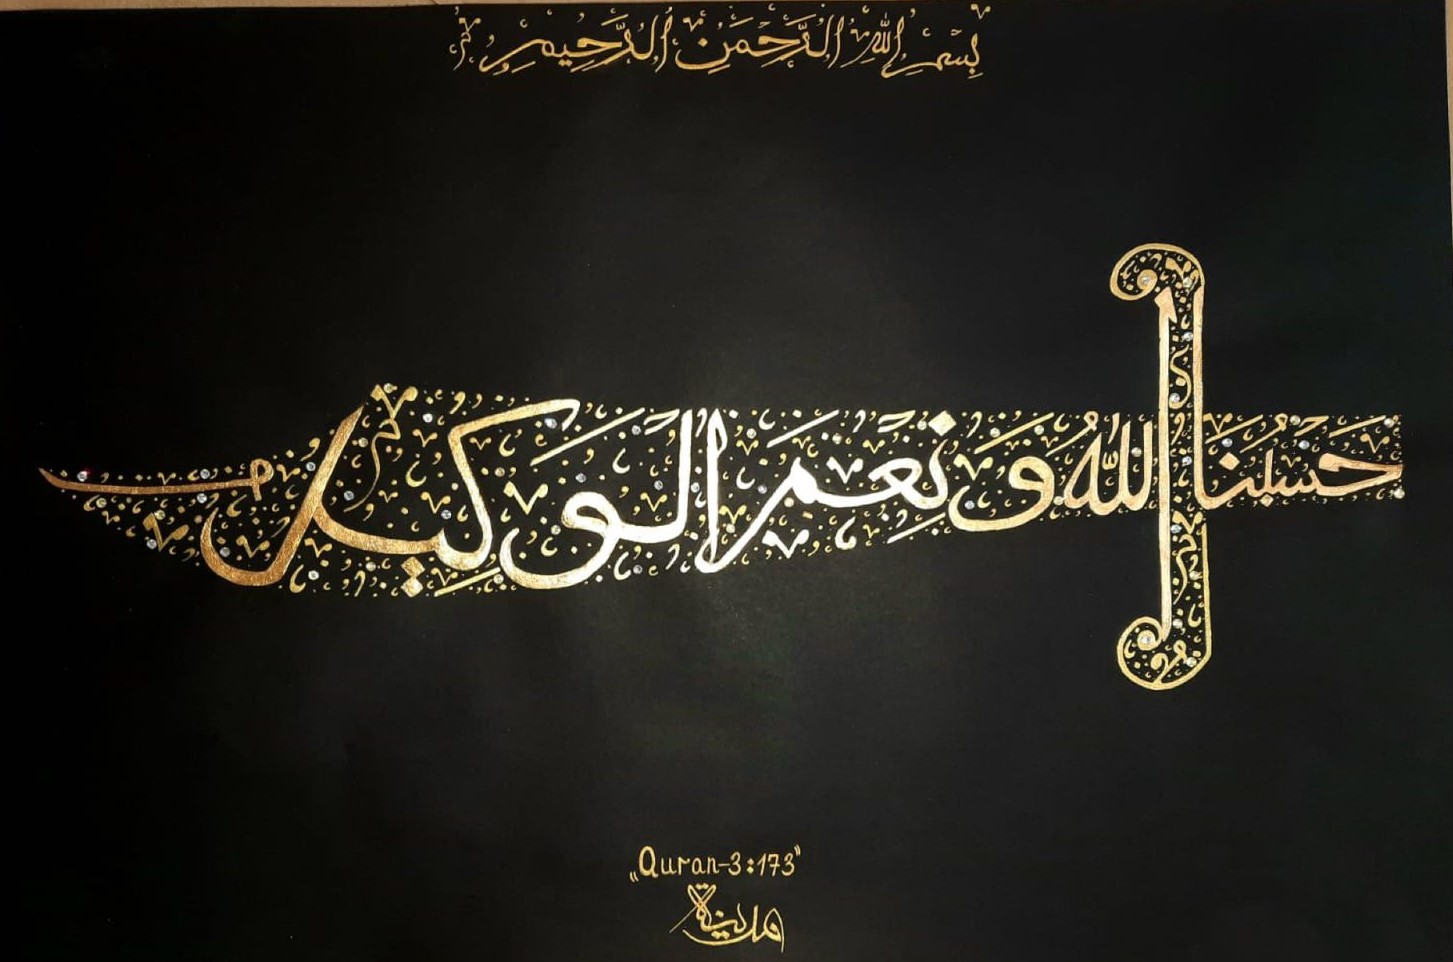 بِسْمِ اللهِ الرَّحْمَنِ الرَّحِيمِ
حَسْبُنَا اللهُ وَنِعْمَ الْوَكِيلُ
„Quran-3:173"
مدينة